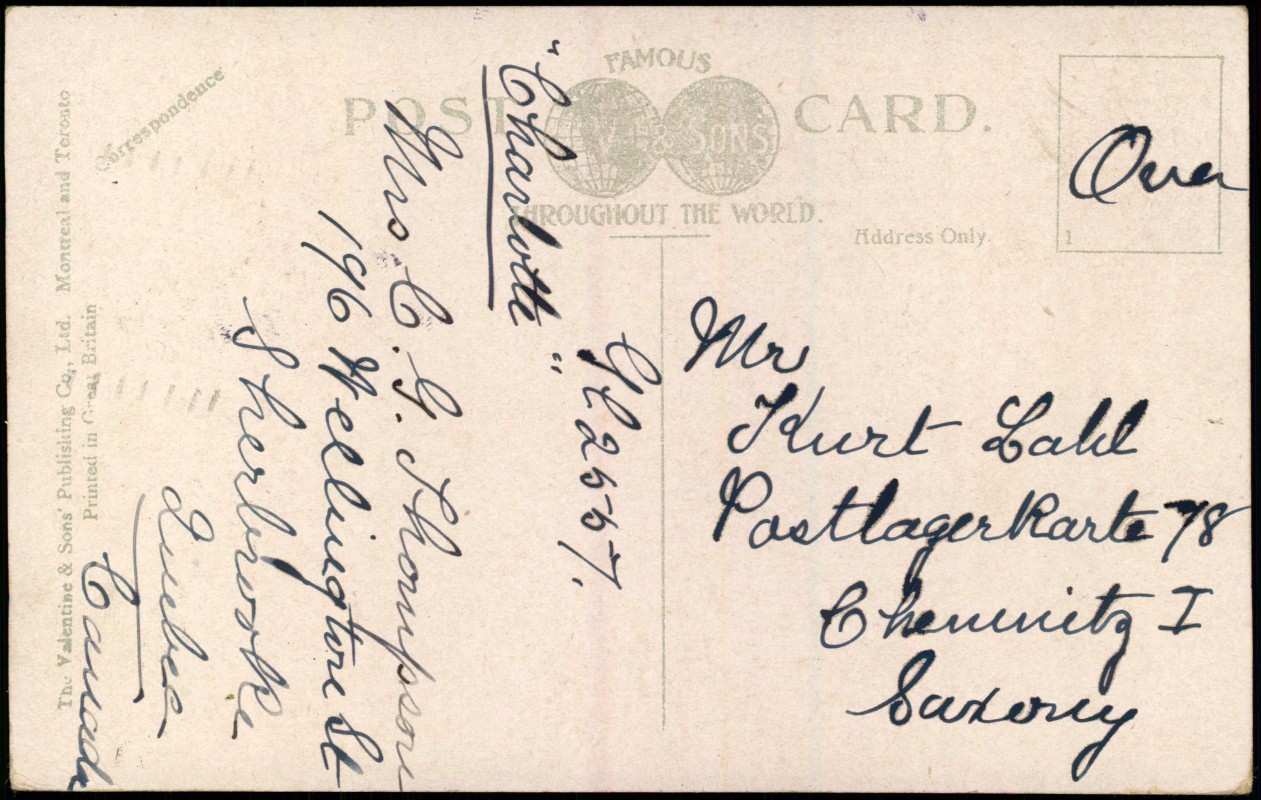 FAMOUS
POST CARD.
V. & SONS
THROUGHOUT THE WORLD.
Correspondence
Address Only.
1
Over
The Valentine & Sons' Publishing Co., Ltd. Montreal and Toronto
Printed in Great Britain
"Charlotte"
Mrs C. G. Thompson
196 Wellington St
Sherbrooke
Quebec
Canada
Mr
Kurt Lahl
Postlagerkarte 78
Chemnitz I
Saxony